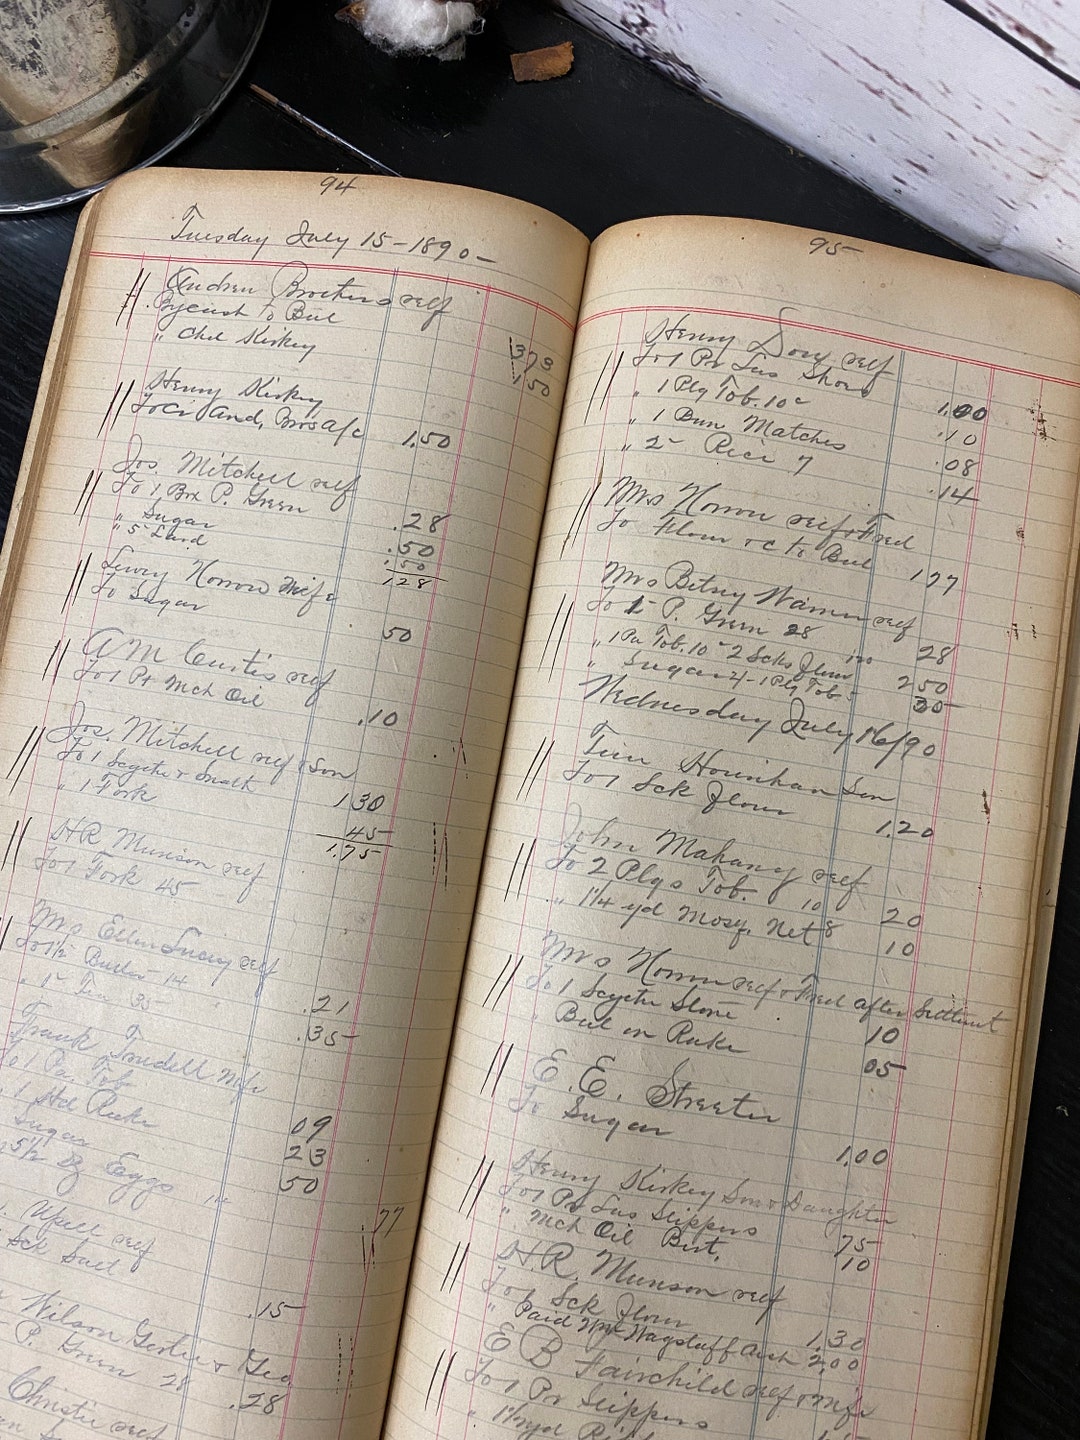 94
Tuesday July 15-1890-
Andrew Brothers self
By cash to Bal 3 73
" Chd Kirkey 1 50
Henry Kirkey
To Ci And, Bros a/c 1.50
Jos. Mitchell self
To 1 Box P. Green .28
" Sugar .50
" 5 Lard .50
1 28
Horrow Wife
To Sugar 50
A M Curtis self
To 1 Pt Mch Oil .10
Jos. Mitchell self & Son
To 1 Scythe & Snath 1 30
" 1 Fork 45
1.75
H R Munson self
To 1 Fork 45
Mrs self
To 1½ Butter 14 .21
" 1- Tea 35 .35
Frank Trudell Wife
To 1 Pa. Tob 09
1 Hd Rake 23
Sugar 50
5½ Dz Eggs 77
Upell self
Sck Salt .15
Wilson & Geo
P. Green 28 .28
Christie self
95
Henry Dory self
To 1 Pr Shoes 1.00
" 1 Plg Tob. 10c .10
" 1 Bun Matches .08
" 2- Rice 7 .14
Mrs Horrow self & Fred
To Flour &c to Bal 1 77
Mrs Betsy Warren self
To 1- P. Green 28 28
" 1 Pa Tob. 10- 2 Scks Flour 120 2 50
" Sugar 4- 1 Plg Tob 5 30
Wednesday July 16/90
Tim Hourihan Son
To 1 Sck Flour 1.20
John Mahany self
To 2 Plgs Tob. 10 20
" 1¼ yd Mosq. Net 8 10
Mrs Horrow self & Fred after Settlement
To 1 Scythe Stone 10
" Bal on Rake 05
E. E. Streeter
To Sugar 1.00
Henry Kirkey Son & Daughter
To 1 Pr Slippers 75
" Mch Oil Bot. 10
H R Munson self
To 1 Sck Flour 1.30
" Paid Wagstaff Cash 2.00
E B Fairchild self & Wife
To 1 Pr Slippers
" 1½ yd